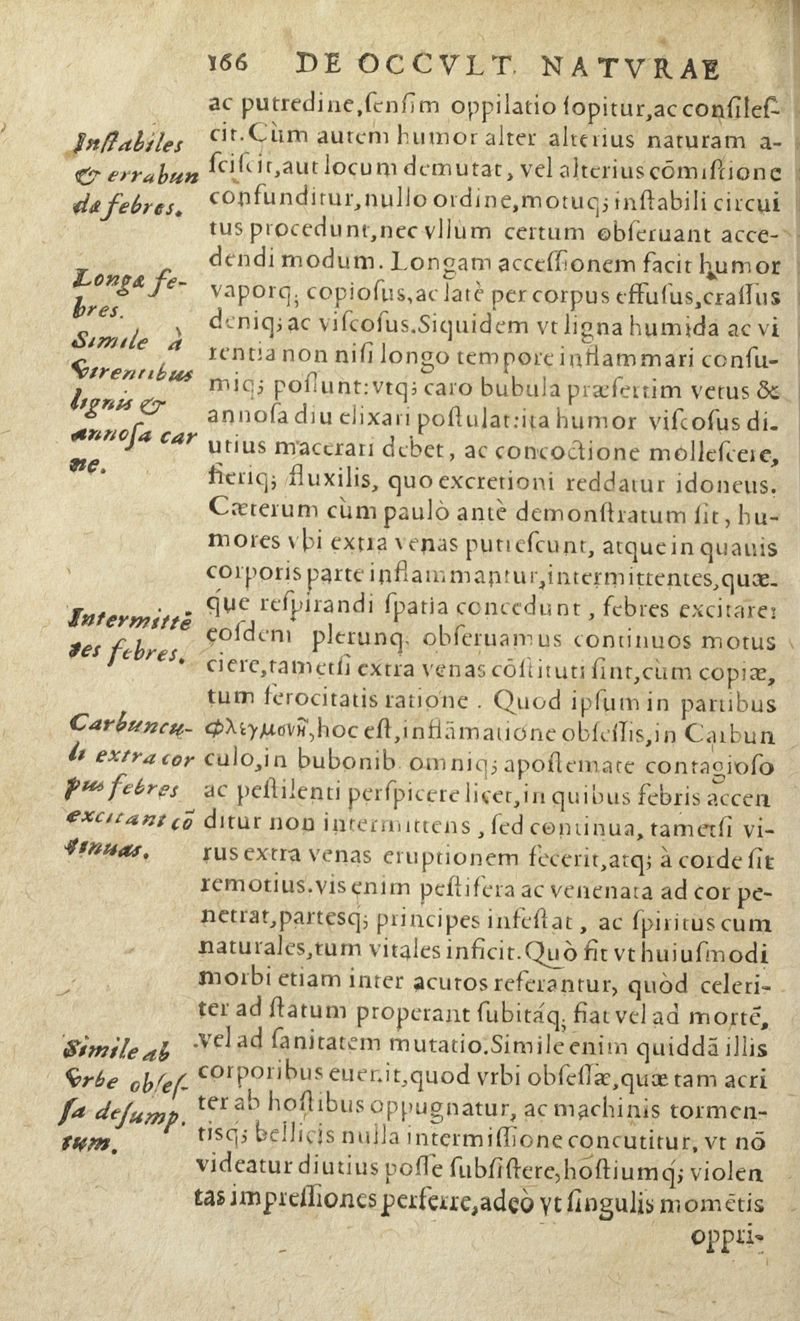 166 DE OCCVLT. NATVRAE
ac putredine,ſenſim oppilatio ſopitur,ac conſileſ-
cit.Cùm autem humor alter alterius naturam a-
ſciſcit,aut locum demutat, vel alterius cōmiſtione
confunditur,nullo ordine,motuq; inſtabili circui
tus procedunt,nec vllum certum obſeruant acce-
dendi modum. Longam acceſſionem facit humor
vaporq; copioſus,ac latè per corpus effuſus,craſſus
deniq; ac viſcoſus.Siquidem vt ligna humida ac vi
rentia non niſi longo tempore inflammari conſu-
miq; poſſunt:vtq; caro bubula præſertim vetus &
annoſa diu elixari poſtulat:ita humor viſcoſus di-
utius macerari debet, ac concoctione molleſcere,
fieriq; fluxilis, quo excretioni reddatur idoneus.
Cæterum cùm paulò antè demonſtratum ſit, hu-
mores vbi extra venas putreſcunt, atque in quauis
corporis parte inflammantur,intermittentes,quæ-
que reſpirandi ſpatia concedunt, febres excitare:
eoſdem plerunq; obſeruamus continuos motus
ciere,tametſi extra venas cōſtituti ſint,cùm copiæ,
tum ferocitatis ratione . Quod ipſum in partibus
φλεγμονῇ,hoc eſt,inflāmatione obſeſſis,in Carbun
culo,in bubonib. omniq; apoſtemate contagioſo
ac peſtilenti perſpicere licet,in quibus febris accen
ditur non intermittens , ſed continua, tametſi vi-
rus extra venas eruptionem fecerit,atq; à corde ſit
remotius.vis enim peſtifera ac venenata ad cor pe-
netrat,partesq; principes infeſtat, ac ſpiritus cum
naturales,tum vitales inficit.Quò fit vt huiuſmodi
morbi etiam inter acutos referantur, quòd celeri-
ter ad ſtatum properant ſubitáq; fiat vel ad mortē,
vel ad ſanitatem mutatio.Simile enim quiddā illis
corporibus euenit,quod vrbi obſeſſæ,quæ tam acri
ter ab hoſtibus oppugnatur, ac machinis tormen-
tisq; bellicis nulla intermiſſione concutitur, vt nō
videatur diutius poſſe ſubſiſtere,hoſtiumq; violen
tas impreſſiones perferre,adeò vt ſingulis momētis
oppri-
Inſtabiles
& errabun
dæ febres.
Longæ fe-
bres.
Simile à
virentibus
lignis &
annoſa car
ne.
Intermittē
tes febres.
Carbuncu-
li extra cor
pus febres
excitant cō
tinuas.
Simile ab
vrbe obſeſ-
ſa deſump.
tum.